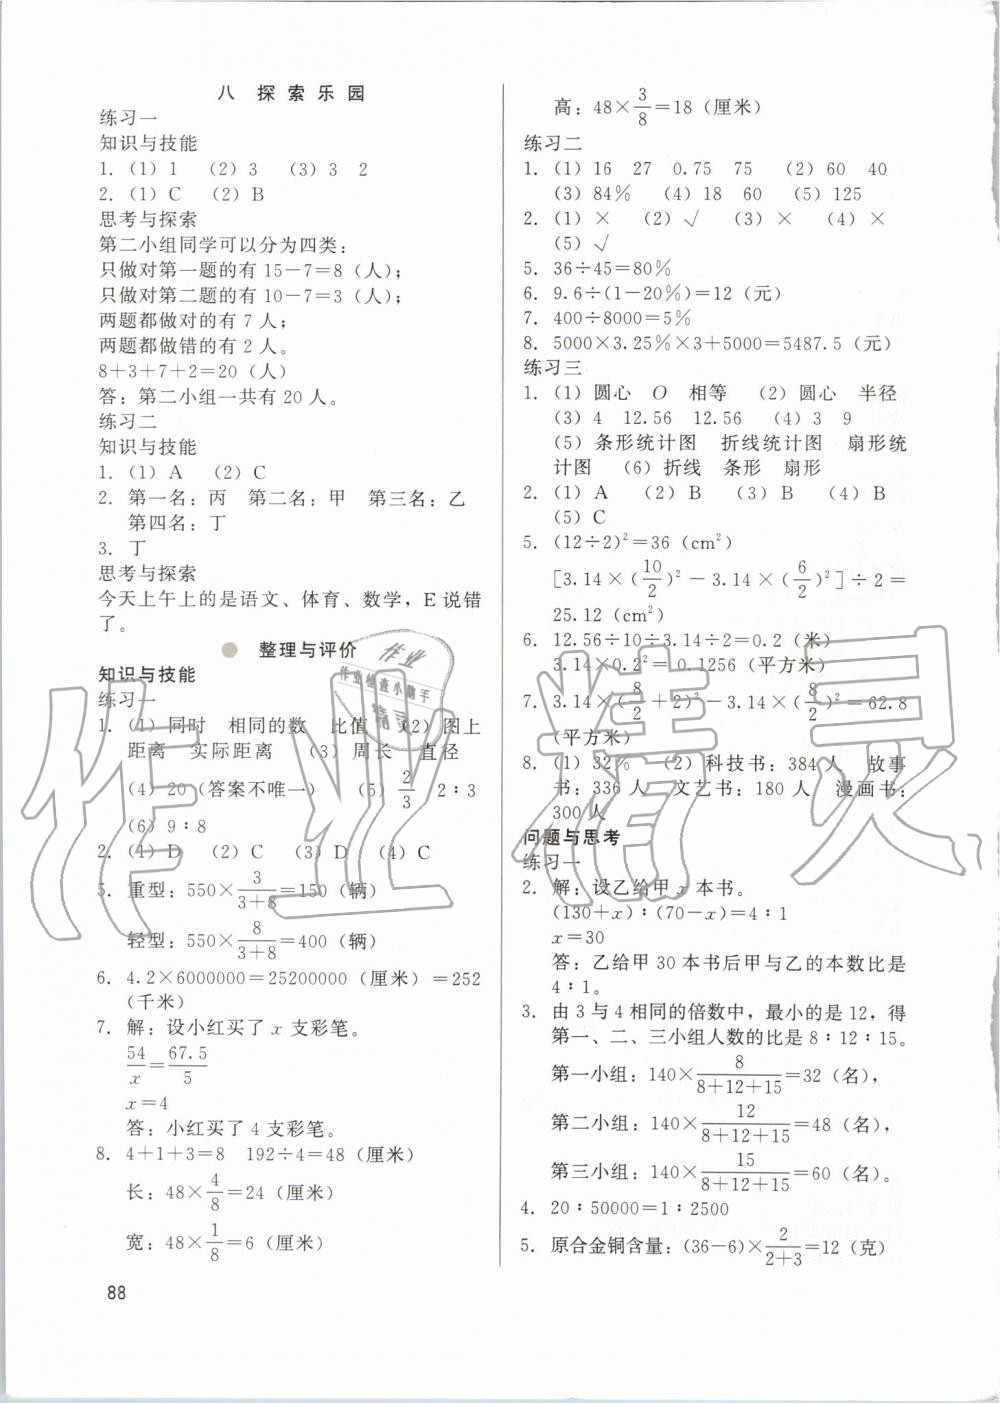 八 探索乐园
练习一
知识与技能
1. (1) 1 (2) 3 (3) 3 2
2. (1) C (2) B
思考与探索
第二小组同学可以分为四类:
只做对第一题的有 15-7=8（人）;
只做对第二题的有 10-7=3（人）;
两题都做对的有 7 人;
两题都做错的有 2 人。
8+3+7+2=20（人）
答: 第二小组一共有 20 人。
练习二
知识与技能
1. (1) A (2) C
2. 第一名: 丙 第二名: 甲 第三名: 乙
第四名: 丁
3. 丁
思考与探索
今天上午上的是语文、体育、数学，E 说错
了。
整理与评价
知识与技能
练习一
1. (1) 同时 相同的数 比值 (2) 图上
距离 实际距离 (3) 周长 直径
(4) 20（答案不唯一） (5) 2/3 2∶3
(6) 9∶8
2. (1) D (2) C (3) D (4) C
5. 重型: 550×3/(3+8)=150（辆）
轻型: 550×8/(3+8)=400（辆）
6. 4.2×6000000=25200000（厘米）=252
（千米）
7. 解: 设小红买了 x 支彩笔。
54/x=67.5/5
x=4
答: 小红买了 4 支彩笔。
8. 4+1+3=8 192÷4=48（厘米）
长: 48×4/8=24（厘米）
宽: 48×1/8=6（厘米）
88
高: 48×3/8=18（厘米）
练习二
1. (1) 16 27 0.75 75 (2) 60 40
(3) 84% (4) 18 60 (5) 125
2. (1) × (2) √ (3) × (4) ×
(5) √
5. 36÷45=80%
6. 9.6÷(1-20%)=12（元）
7. 400÷8000=5%
8. 5000×3.25%×3+5000=5487.5（元）
练习三
1. (1) 圆心 O 相等 (2) 圆心 半径
(3) 4 12.56 12.56 (4) 3 9
(5) 条形统计图 折线统计图 扇形统
计图 (6) 折线 条形 扇形
2. (1) A (2) B (3) B (4) B
(5) C
5. (12÷2)²=36（cm²）
[3.14×(10/2)²-3.14×(6/2)²]÷2=
25.12（cm²）
6. 12.56÷10÷3.14÷2=0.2（米）
3.14×0.2²=0.1256（平方米）
7. 3.14×(8/2+2)²-3.14×(8/2)²=62.8
（平方米）
8. (1) 32% (2) 科技书: 384 人 故事
书: 336 人 文艺书: 180 人 漫画书:
300 人
问题与思考
练习一
2. 解: 设乙给甲 x 本书。
(130+x)∶(70-x)=4∶1
x=30
答: 乙给甲 30 本书后甲与乙的本数比是
4∶1。
3. 由 3 与 4 相同的倍数中，最小的是 12，得
第一、二、三小组人数的比是 8∶12∶15。
第一小组: 140×8/(8+12+15)=32（名），
第二小组: 140×12/(8+12+15)=48（名），
第三小组: 140×15/(8+12+15)=60（名）。
4. 20∶50000=1∶2500
5. 原合金铜含量: (36-6)×2/(2+3)=12（克）
作业精灵
作业
作业检查小助手
精灵